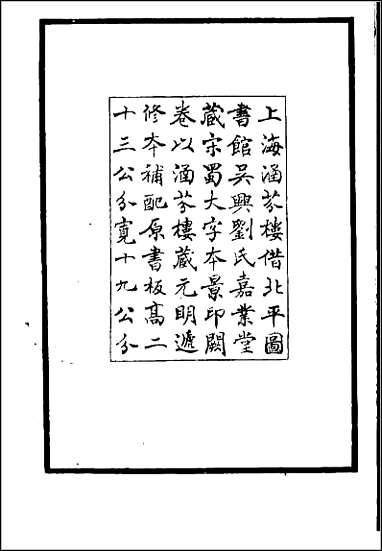 上海涵芬樓借北平圖
書館吳興劉氏嘉業堂
藏宋蜀大字本景印闕
卷以涵芬樓藏元明遞
修本補配原書板高二
十三公分寬十九公分